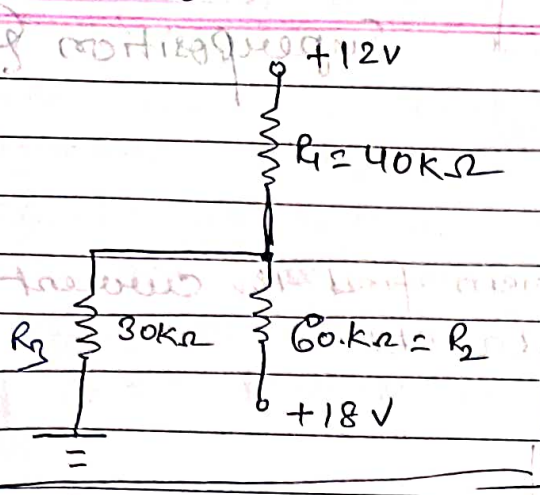 +12V
R1 = 40KΩ
R3 30KΩ 60.KΩ = R2
+18 V